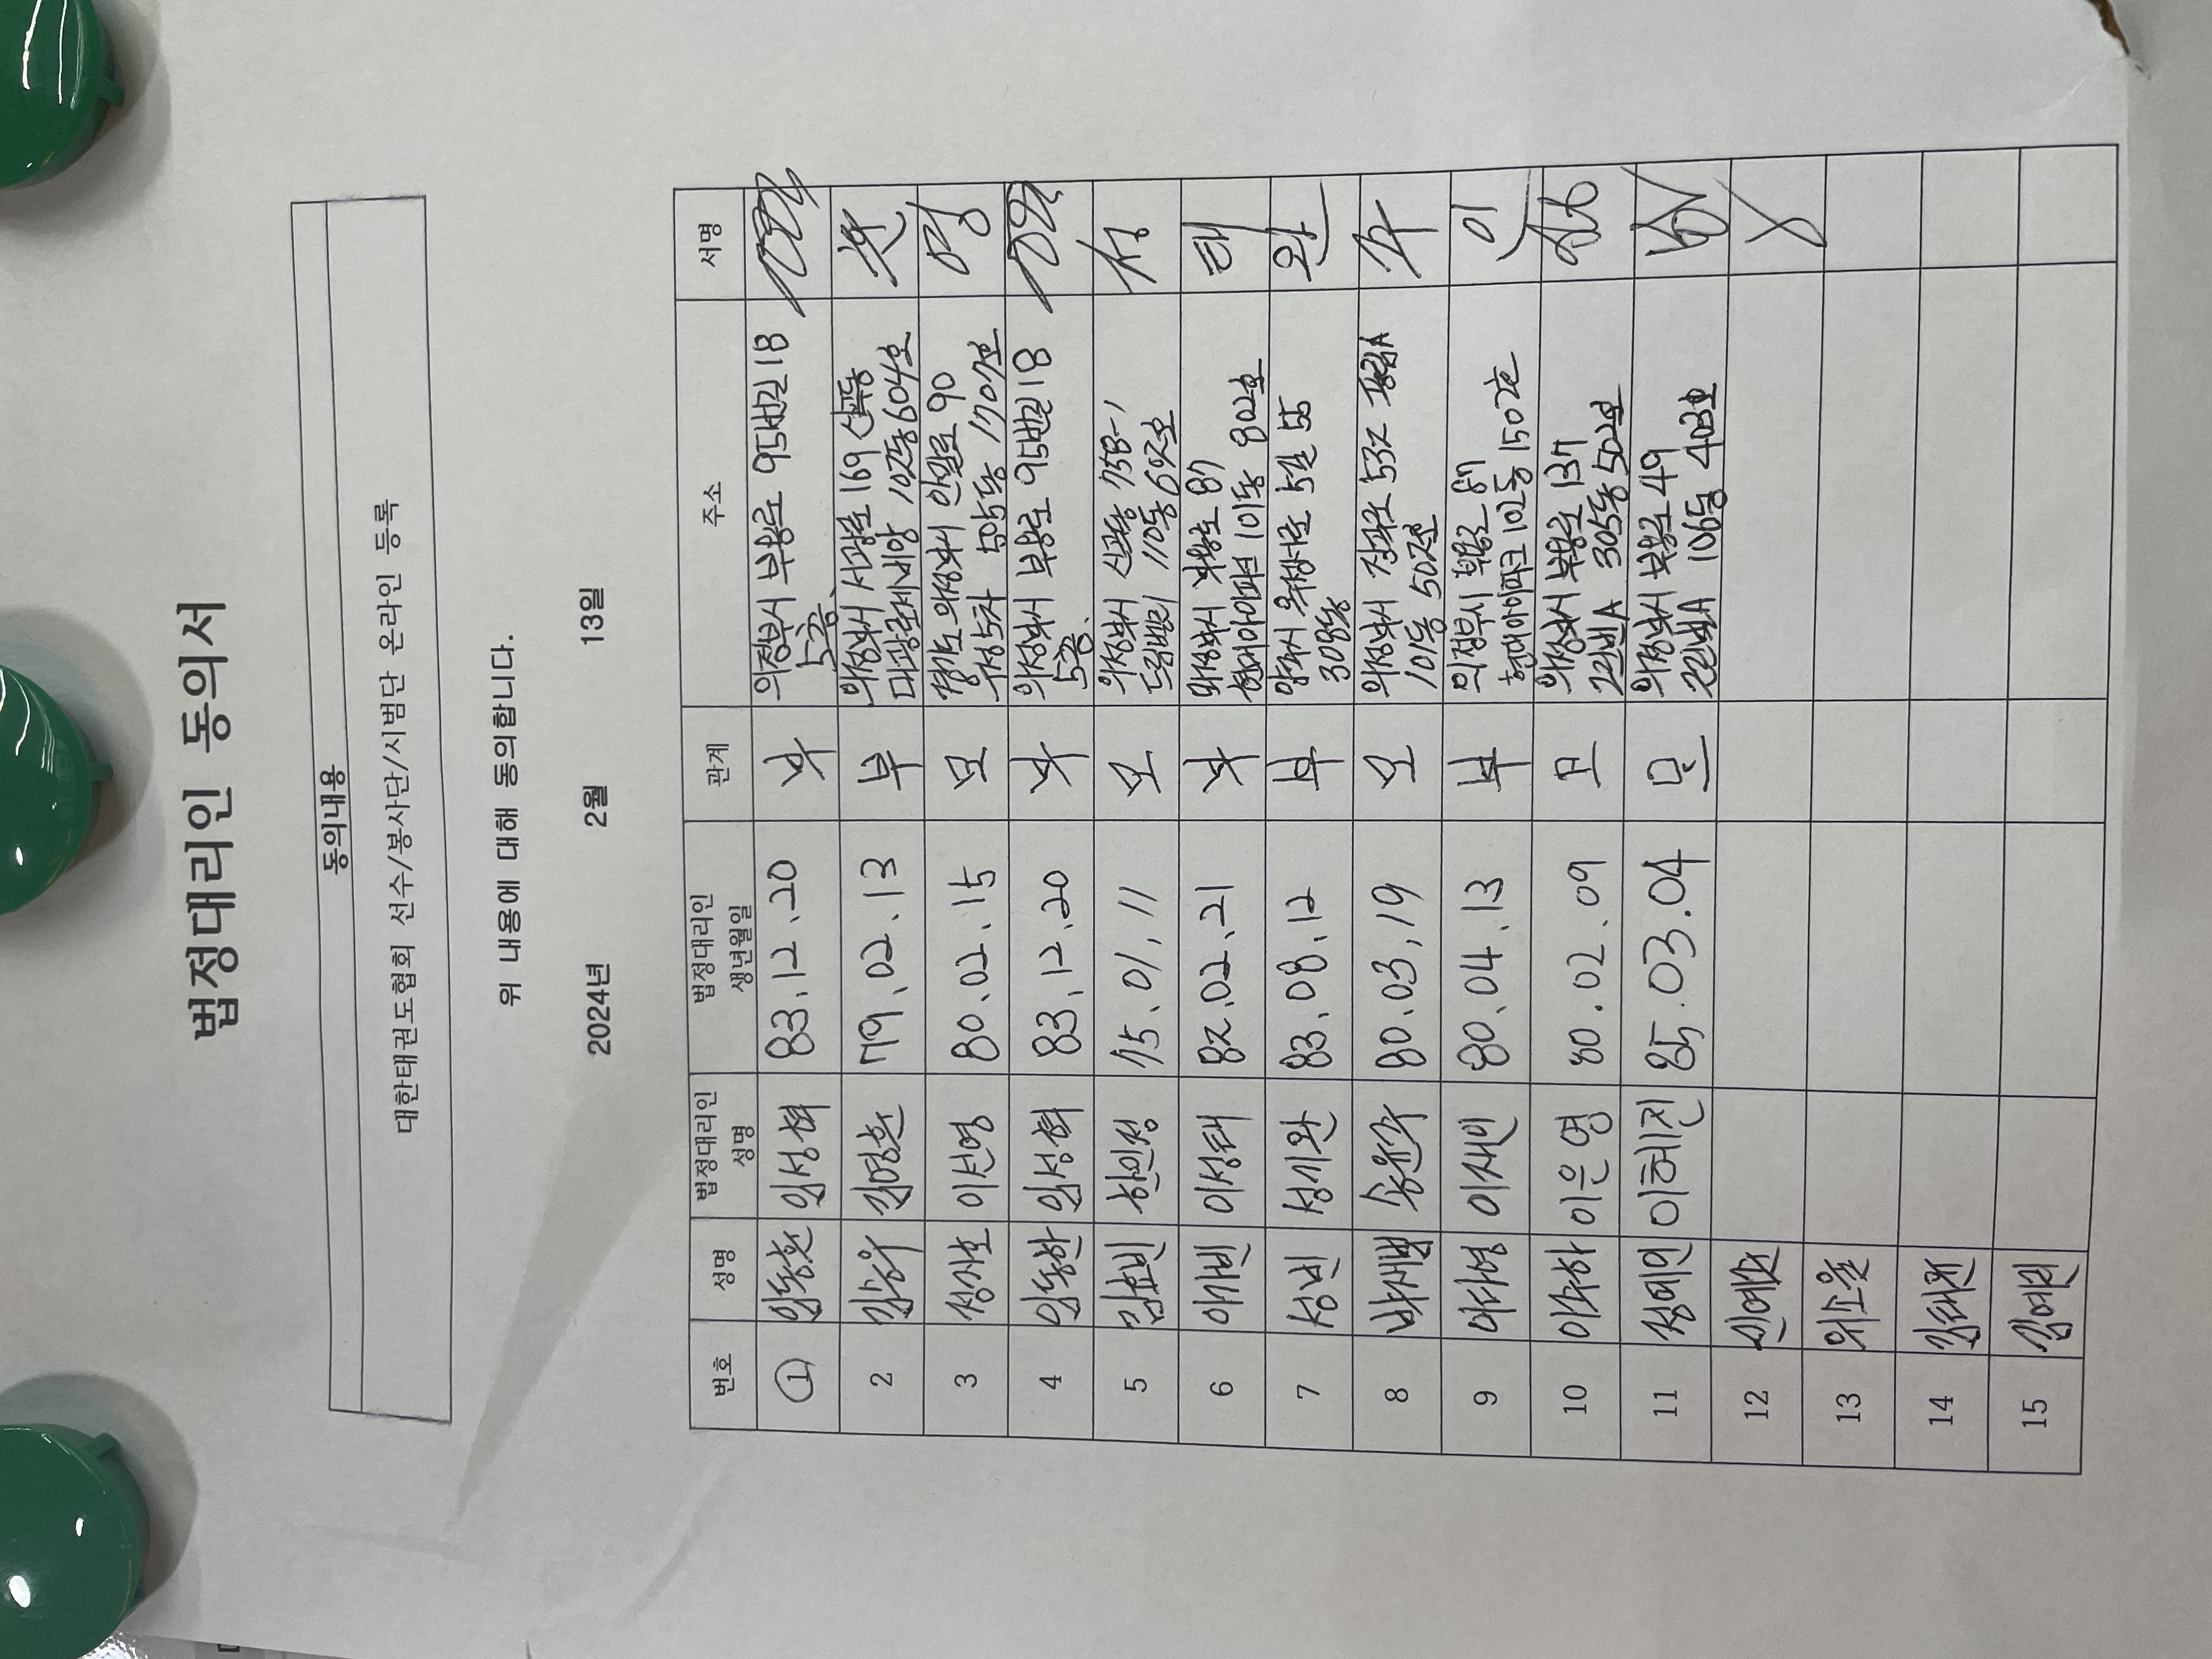 법정대리인 동의서
동의내용
대한태권도협회 선수/봉사단/시범단 온라인 등록
위 내용에 대해 동의합니다.
2024년 2월 13일
번호 성명 법정대리인 성명 법정대리인 생년월일 관계 주소 서명
① 임동훈 임성혁 83.12.20 부 의정부시 부용로 95번길 18
5층.
2 김승우 김명훈 79.02.13 부 의정부시 서광로 169 신곡동
102동 604호
3 정지호 이선영 80.02.15 모 경기도 의정부시 안말로 90
1701호 영
4 임동한 임성혁 83.12.20 부 의정부시 부용로 95번길 18
5층.
5 김효빈 한인정 75.01.11 모 의정부시 신곡동 758-1
드림밸리 110동 정
6 이성태 82.02.21 부 의정부시 부용로 87
현대아이파크 101동 802호 태
7 성빈 성기완 83.08.12 부 55
308동 완
8 박재범 송윤주 80.03.19 모 의정부시 532
101동 502호 주
9 이다영 이재인 80.04.13 부 의정부시 부용로 87
현대아이파크 102동 1502호 이
10 이주하 이은영 80.02.09 모 의정부시 부용로 137
305동 502호
11 정예인 이혜진 85.03.04 모 의정부시 부용로 49
106동 403호
12
13 위소율
14 김태건
15 김예린